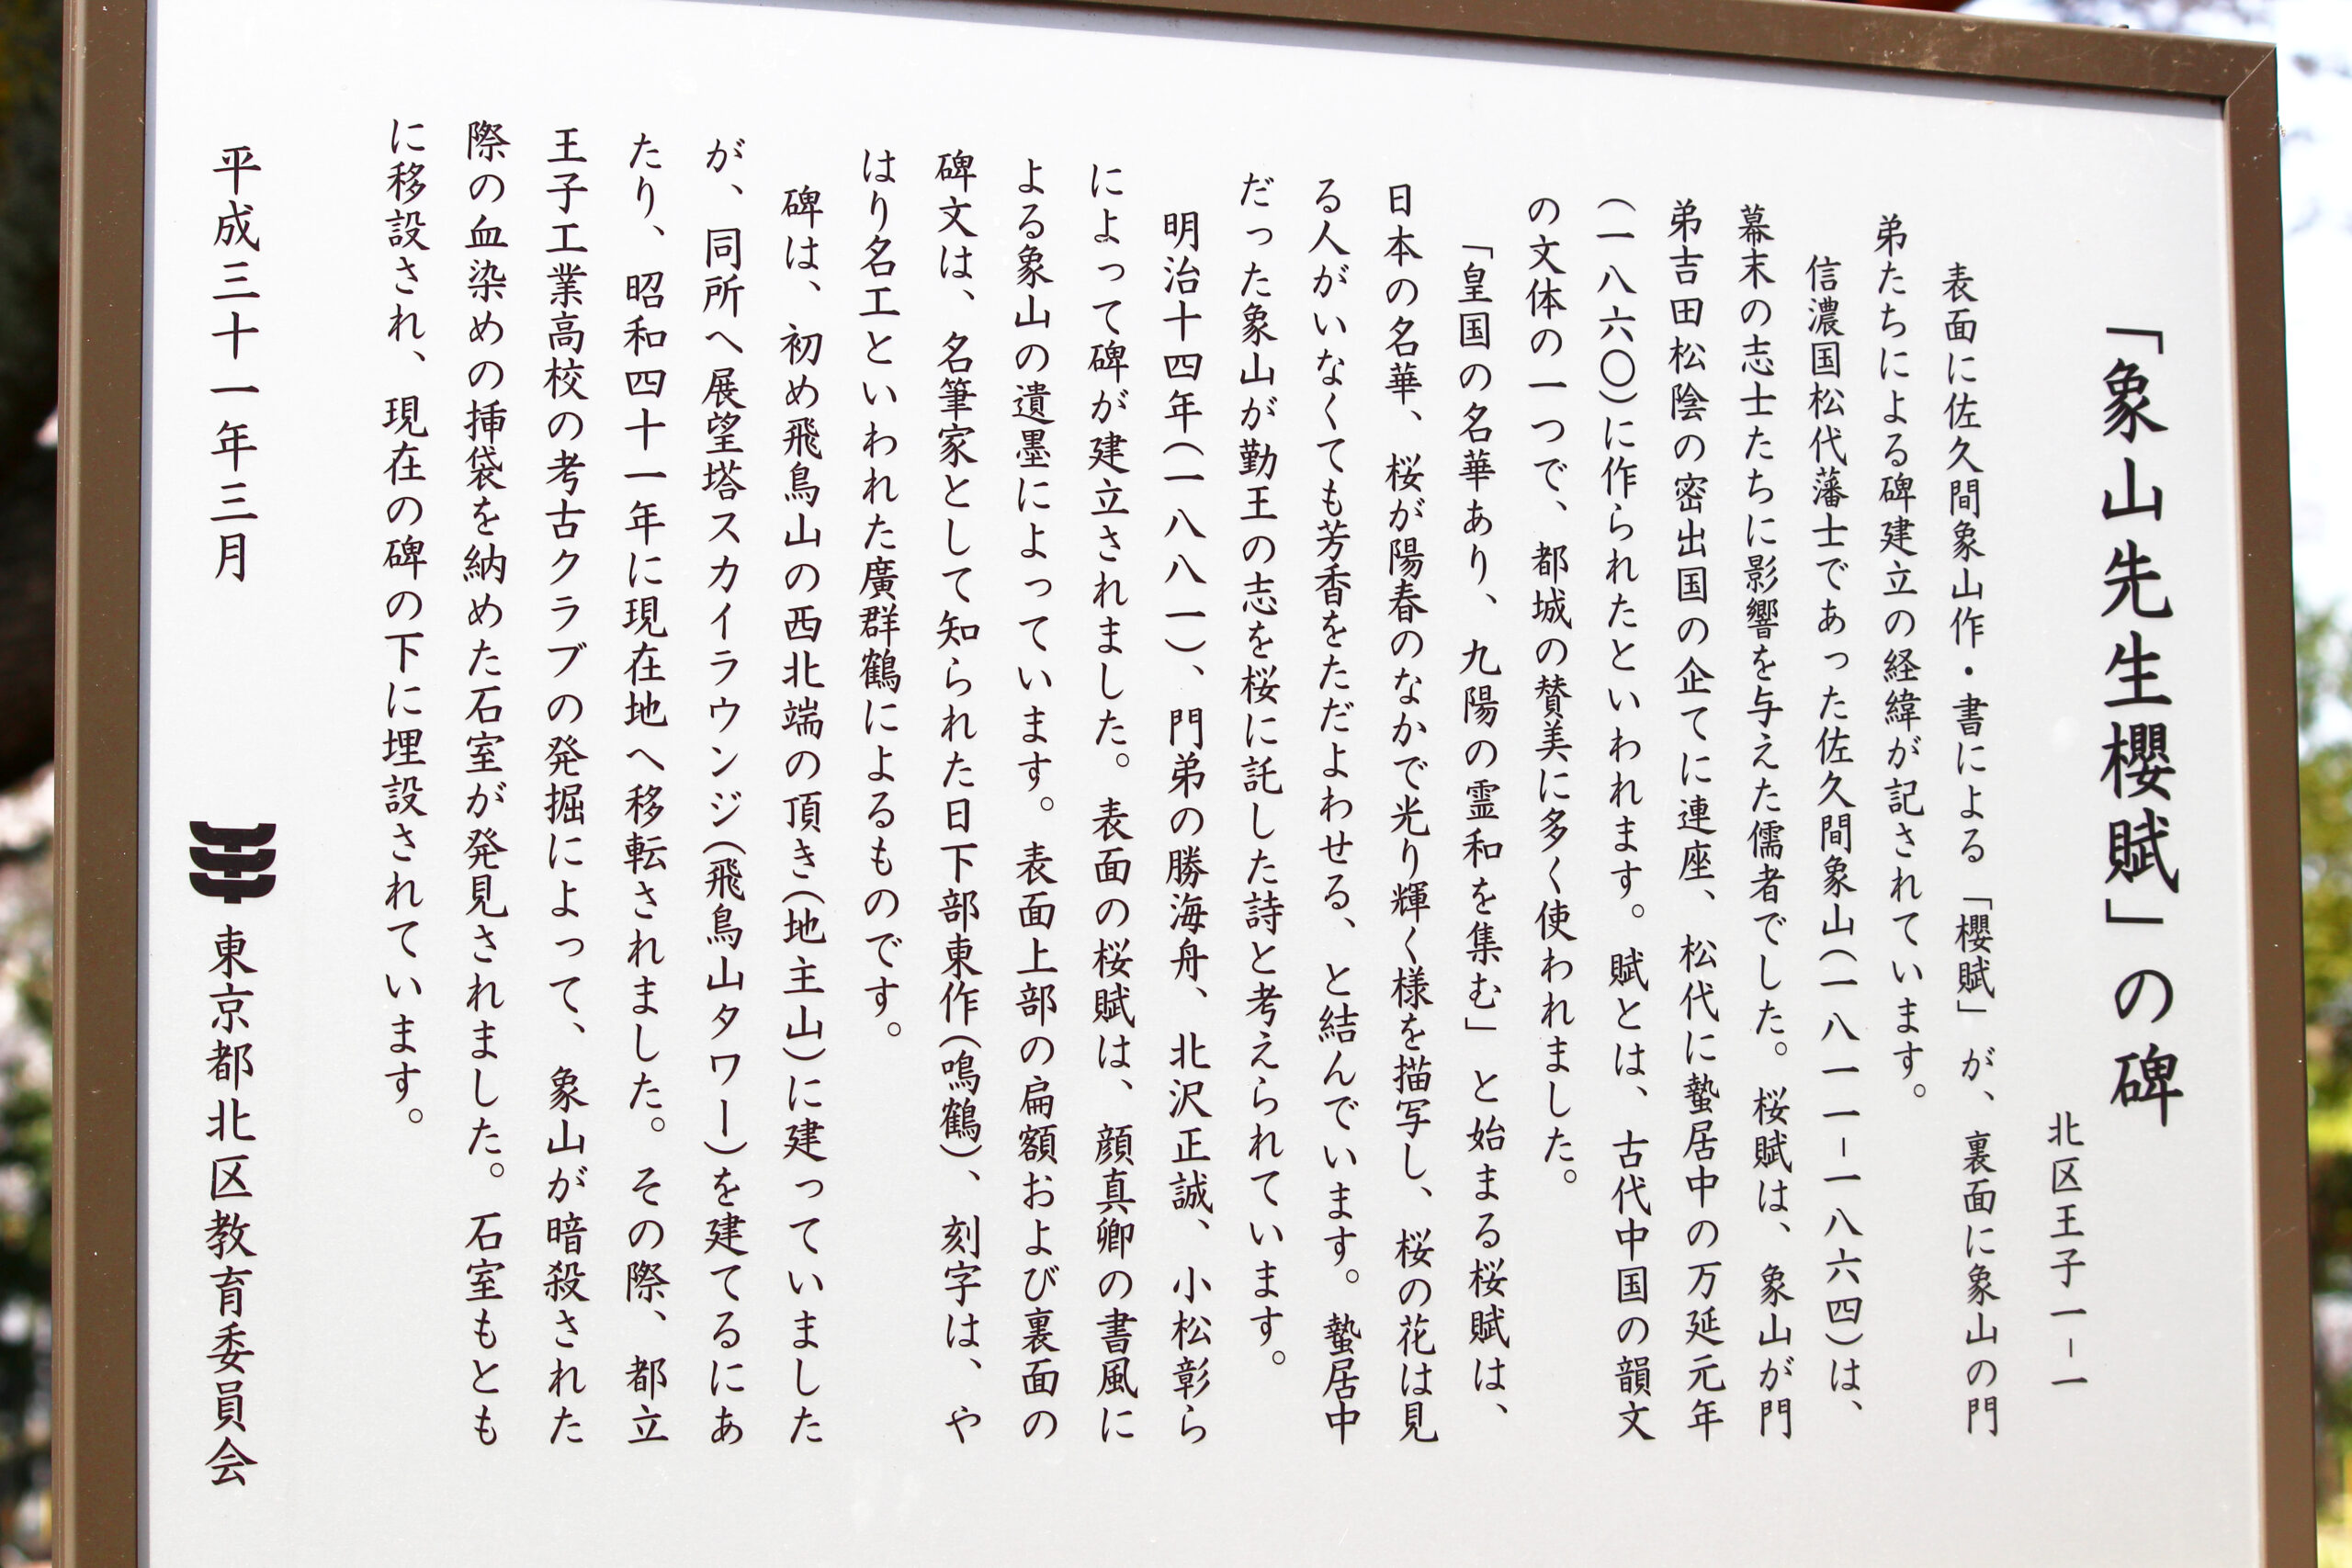 「象山先生櫻賦」の碑
北区王子一-一
表面に佐久間象山作・書による「櫻賦」が、裏面に象山の門
弟たちによる碑建立の経緯が記されています。
信濃国松代藩士であった佐久間象山(一八一一-一八六四)は、
幕末の志士たちに影響を与えた儒者でした。桜賦は、象山が門
弟吉田松陰の密出国の企てに連座、松代に蟄居中の万延元年
(一八六〇)に作られたといわれます。賦とは、古代中国の韻文
の文体の一つで、都城の賛美に多く使われました。
「皇国の名華あり、九陽の霊和を集む」と始まる桜賦は、
日本の名華、桜が陽春のなかで光り輝く様を描写し、桜の花は見
る人がいなくても芳香をただよわせる、と結んでいます。蟄居中
だった象山が勤王の志を桜に託した詩と考えられています。
明治十四年(一八八一)、門弟の勝海舟、北沢正誠、小松彰ら
によって碑が建立されました。表面の桜賦は、顔真卿の書風に
よる象山の遺墨によっています。表面上部の扁額および裏面の
碑文は、名筆家として知られた日下部東作(鳴鶴)、刻字は、や
はり名工といわれた廣群鶴によるものです。
碑は、初め飛鳥山の西北端の頂き(地主山)に建っていました
が、同所へ展望塔スカイラウンジ(飛鳥山タワー)を建てるにあ
たり、昭和四十一年に現在地へ移転されました。その際、都立
王子工業高校の考古クラブの発掘によって、象山が暗殺された
際の血染めの挿袋を納めた石室が発見されました。石室もとも
に移設され、現在の碑の下に埋設されています。
平成三十一年三月
東京都北区教育委員会